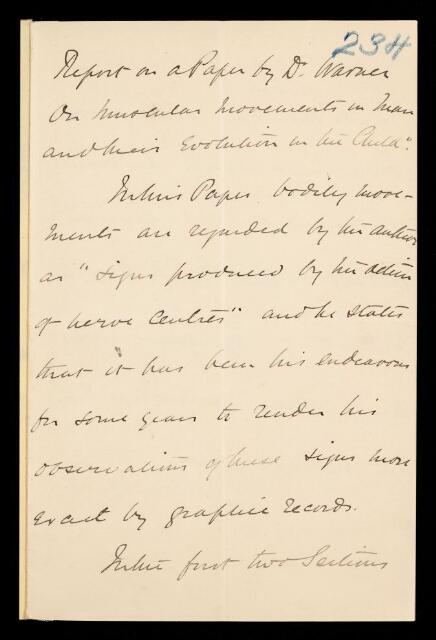 234
Report on a Paper by Dr. Warner
On Muscular Movements in Man
and their Evolution in the Child".
In this Paper bodily move-
ments are regarded by the author
as "signs produced by the action
of nerve centres" and he states
that it has been his endeavour
for some years to render his
observations of these signs more
exact by graphic records.
In the first two Sections